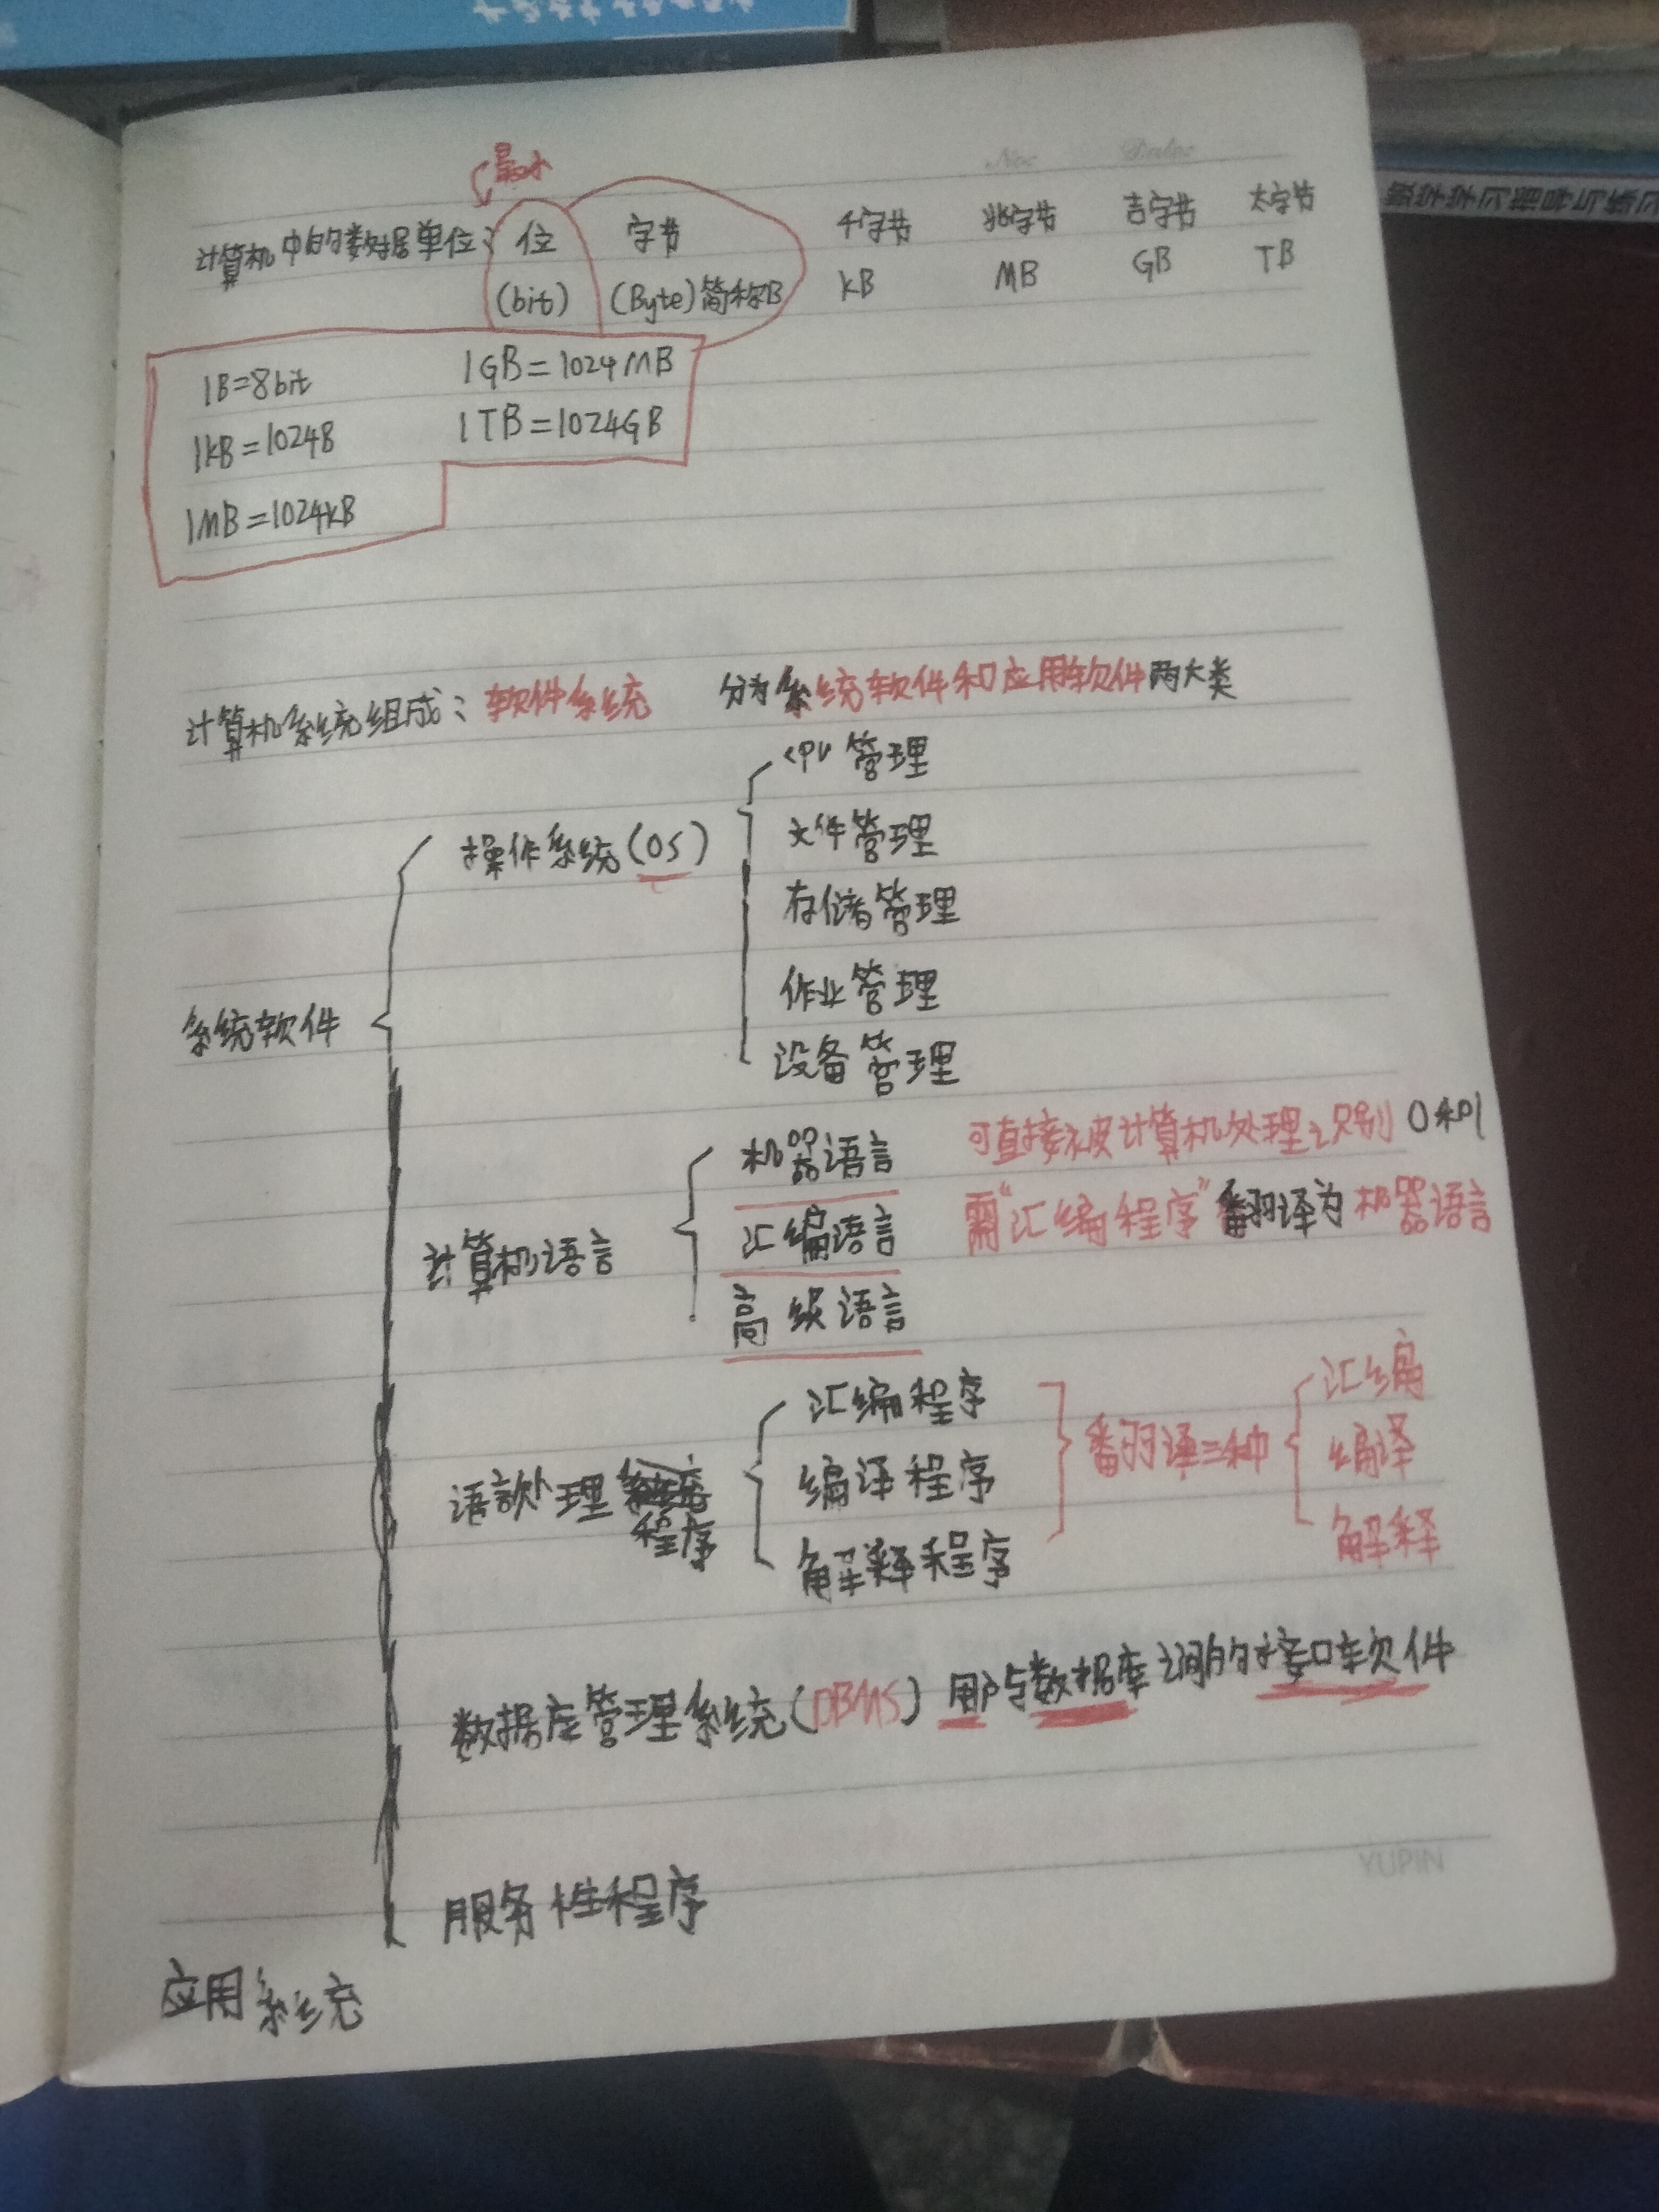 No: Date:
最小
计算机中的数据单位: 位 字节 千字节 兆字节 吉字节 太字节
(bit) (Byte)简称B kB MB GB TB
1B=8bit 1GB=1024MB
1kB=1024B 1TB=1024GB
1MB=1024kB
计算机系统组成: 软件系统 分为系统软件和应用软件两大类
系统软件
操作系统(OS)
CPU管理
文件管理
存储管理
作业管理
设备管理
计算机语言
机器语言 可直接被计算机处理识别 0和1
汇编语言 需"汇编程序"翻译为机器语言
高级语言
语言处理程序
汇编程序
编译程序
解释程序
翻译三种
汇编
编译
解释
数据库管理系统(DBMS) 用户与数据库间的接口软件
服务性程序
应用系统
YUPIN